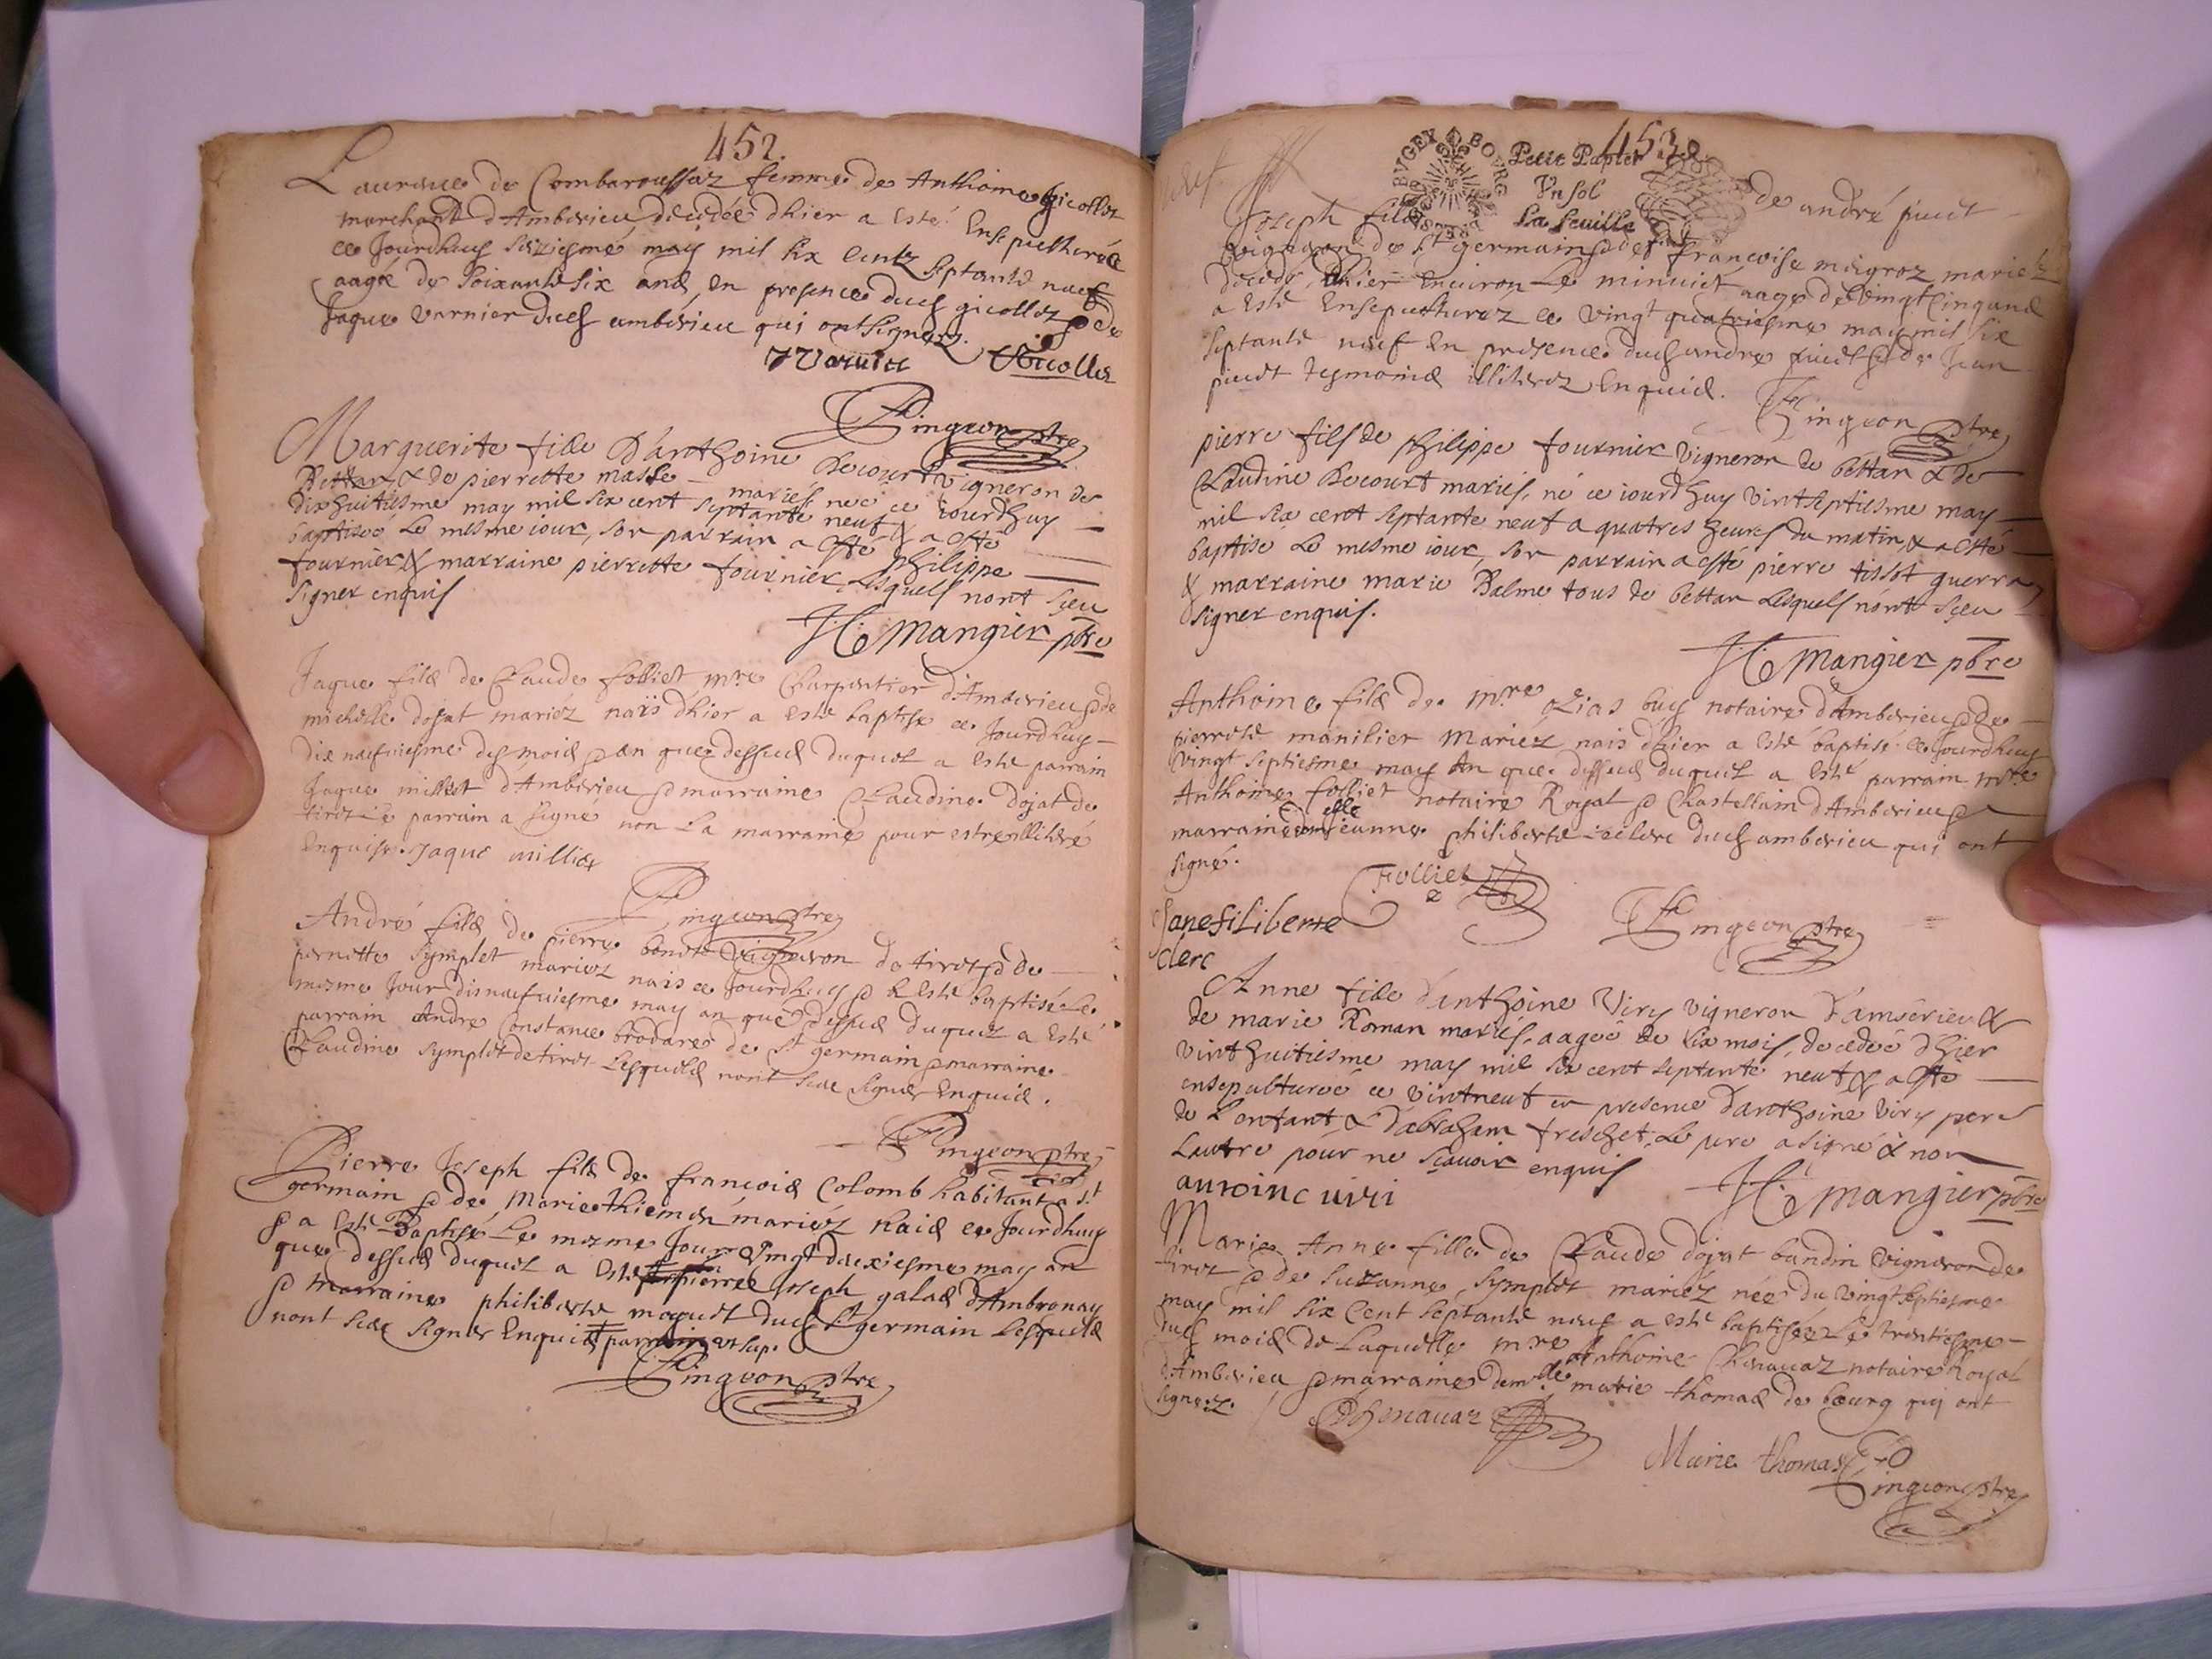 452.
Laurance de Combaroussaz femme de Anthoine Gicollet
marchant d'Amberieu, decedée dhier a esté Ensepulturée
ce Jourdhuy seziesme may mil six centz septante neuf
aagée de soixante six ans, en presence dud gicollet & de
Jaque Varnier dud amberieu qui ont signez.
J Varnier Gicollet
Pingeon ptre
Marguerite fille d'anthoine Recourt vigneron de
Bettan & de pierrette masse mariés nee ce iourdhuy
dixhuitiesme may mil six cent septante neuf & a esté
baptisee le mesme iour, son parrain a esté philippe
fournier & marraine pierrette fournier, Lesquels nont sceu
signer enquis
H. mangier pbre
Jaque fils de Claude folliet mre Charpentier d'Amberieu & de
michelle dojat mariéz naïs dhier a esté baptisé ce Jourdhuy
dix neufviesme du moid & an que dessus duquel a esté parrain
Jaque milliet d'Amberieu & marraine Claudine dojat de
tiret Le parrain a signé non La marraine pour estre illiteré
Enquise. Jaque milliet
Pingeon ptre
André fils de pierre bonete vigneron de tiret & de
pernette symplet mariéz nais ce Jourdhuy & a esté baptisé Le
mesme Jour disneufviesme may an que dessus duquel a esté
parrain André Constance brodare de St germain & marraine
Claudine symplet de tiret Lesquels nont sceu signer Enquis.
Pingeon ptre
Pierre Joseph fils de francois Colomb habitant a St
germain & de Marie thiemen mariéz nais ce Jourdhuy
& a esté Baptisé Le mesme Jour vingt deuxiesme may an
que dessus duquel a esté pierre Joseph galas d'Ambronay
& marraine philiberte moquet dud St germain Lesquels
nont sceu signer Enquis parrain en sup.
Pingeon ptre
453
BVGEY BOVRG
Petit Papier
Vn sol
La feuille
Joseph fils de andré piuet
vigneron de St germain & de francoise maigroz mariéz
decedé dhier Environ Le minuict aagé de vingt cinq ans
a esté Ensepulturez ce vingt quatriesme may mil six
septante neuf en presence dud andre piuet & de Jean
piuet tesmoins illiterez Enquis.
Pingeon ptre
pierre fils de philippe fournier vigneron de bettan & de
Claudine Recourt mariés, né ce iourdhuy vintseptiesme may
mil six cent septante neuf a quatres heures du matin, & a esté
baptisé le mesme iour, son parrain a esté pierre tissot guerra
& marraine marie Balme tous de bettan Lesquels nont sceu
signer enquis.
H. mangier pbre
Anthoine fils de mre Elias buy notaire d'Amberieu & de
pierrette manilier mariéz nais dhier a esté baptisé ce Jourdhuy
vingt septiesme may an que dessus duquel a esté parrain mre
Anthoine folliet notaire Royal & Chastellain d'Amberieu &
marraine damelle jeanne philiberte leclerc dud amberieu qui ont
signé.
Folliet
Janefiliberte
clerc
Pingeon ptre
Anne fille d'anthoine Viry vigneron d'amberieu &
de marie Roman mariés, aageé de six mois, decedeé dhier
vinthuitiesme may mil six cent septante neuf & a esté
ensepultureé ce vintneuf en presence d'anthoine viry pere
de L'enfant & d'abraham freschet, Le pere a signé & non
Lautre pour ne scauoir enquis
antoine uiri
H. mangier pbre
Marie Anne fille de Claude dojat bandin vigneron de
tiret & de suzanne symplet mariéz neé du vingtseptiesme
may mil six Cent septante neuf a esté baptiseé Le trentiesme
dud moid de Laquelle mre Anthoine Chenauaz notaire Royal
d'Amberieu & marraine demlle marie thomas de bourg qui ont
signez.
Chenauaz
Marie thomas
Pingeon ptre